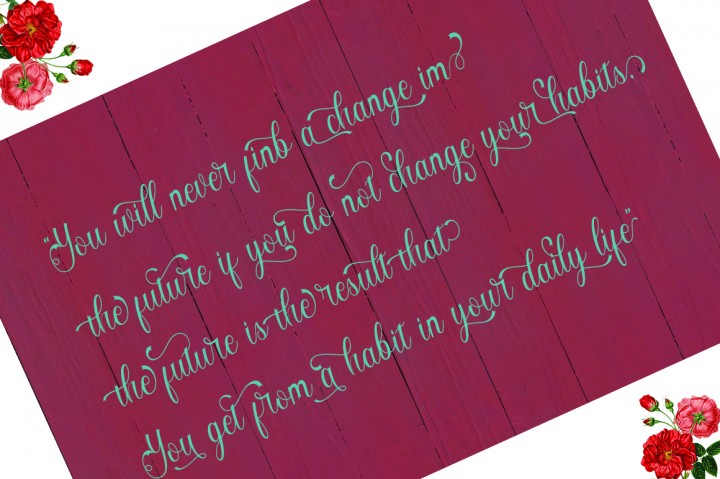 "You will never finb a change im
the future if you do not change your habits.
the future is the result that
You get from a habit in your daily life"